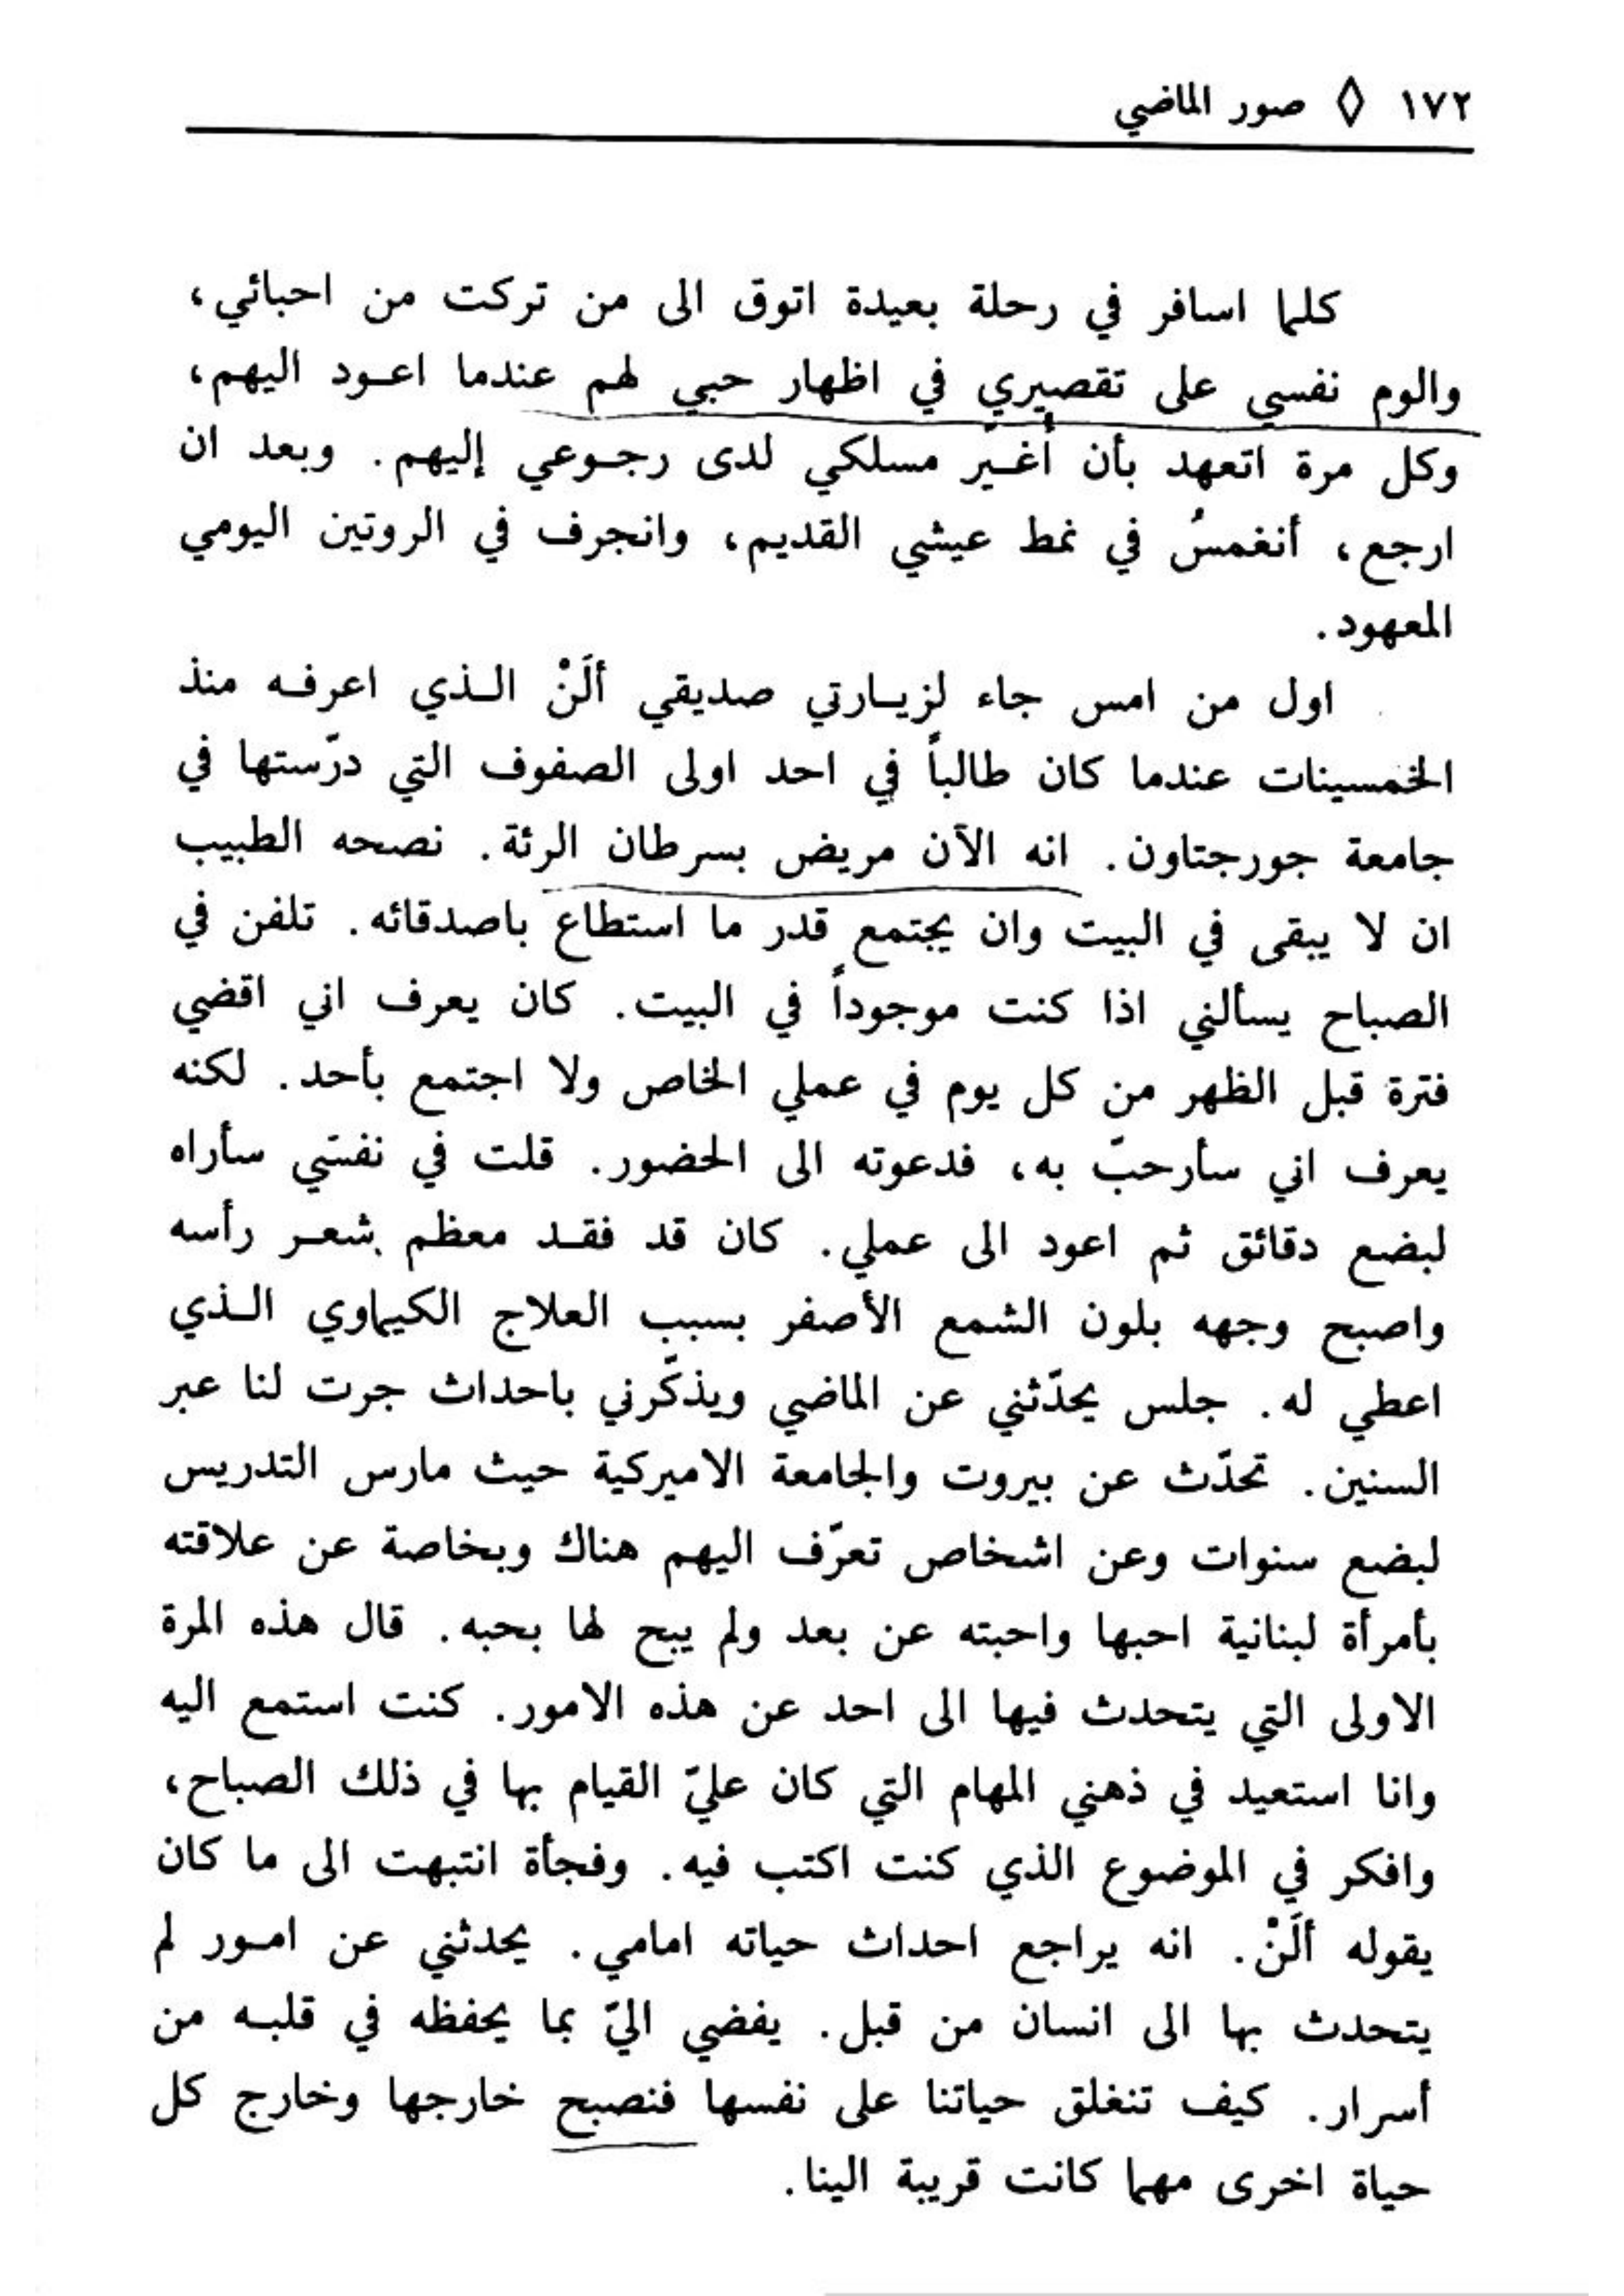 ١٧٢ ◊ صور الماضي
كلما اسافر في رحلة بعيدة اتوق الى من تركت من احبائي،
والوم نفسي على تقصيري في اظهار حبي لهم عندما اعود اليهم،
وكل مرة اتعهد بأن أغيّر مسلكي لدى رجوعي إليهم. وبعد ان
ارجع، أنغمسُ في نمط عيشي القديم، وانجرف في الروتين اليومي
المعهود.
اول من امس جاء لزيارتي صديقي ألَنْ الذي اعرفه منذ
الخمسينات عندما كان طالباً في احد اولى الصفوف التي درّستها في
جامعة جورجتاون. انه الآن مريض بسرطان الرئة. نصحه الطبيب
ان لا يبقى في البيت وان يجتمع قدر ما استطاع باصدقائه. تلفن في
الصباح يسألني اذا كنت موجوداً في البيت. كان يعرف اني اقضي
فترة قبل الظهر من كل يوم في عملي الخاص ولا اجتمع بأحد. لكنه
يعرف اني سأرحبّ به، فدعوته الى الحضور. قلت في نفسي سأراه
لبضع دقائق ثم اعود الى عملي. كان قد فقد معظم شعر رأسه
واصبح وجهه بلون الشمع الأصفر بسبب العلاج الكيماوي الذي
اعطي له. جلس يحدّثني عن الماضي ويذكّرني باحداث جرت لنا عبر
السنين. تحدّث عن بيروت والجامعة الاميركية حيث مارس التدريس
لبضع سنوات وعن اشخاص تعرّف اليهم هناك وبخاصة عن علاقته
بأمرأة لبنانية احبها واحبته عن بعد ولم يبح لها بحبه. قال هذه المرة
الاولى التي يتحدث فيها الى احد عن هذه الامور. كنت استمع اليه
وانا استعيد في ذهني المهام التي كان عليّ القيام بها في ذلك الصباح،
وافكر في الموضوع الذي كنت اكتب فيه. وفجأة انتبهت الى ما كان
يقوله ألَنْ. انه يراجع احداث حياته امامي. يحدثني عن امور لم
يتحدث بها الى انسان من قبل. يفضي اليّ بما يحفظه في قلبه من
أسرار. كيف تنغلق حياتنا على نفسها فنصبح خارجها وخارج كل
حياة اخرى مهما كانت قريبة الينا.